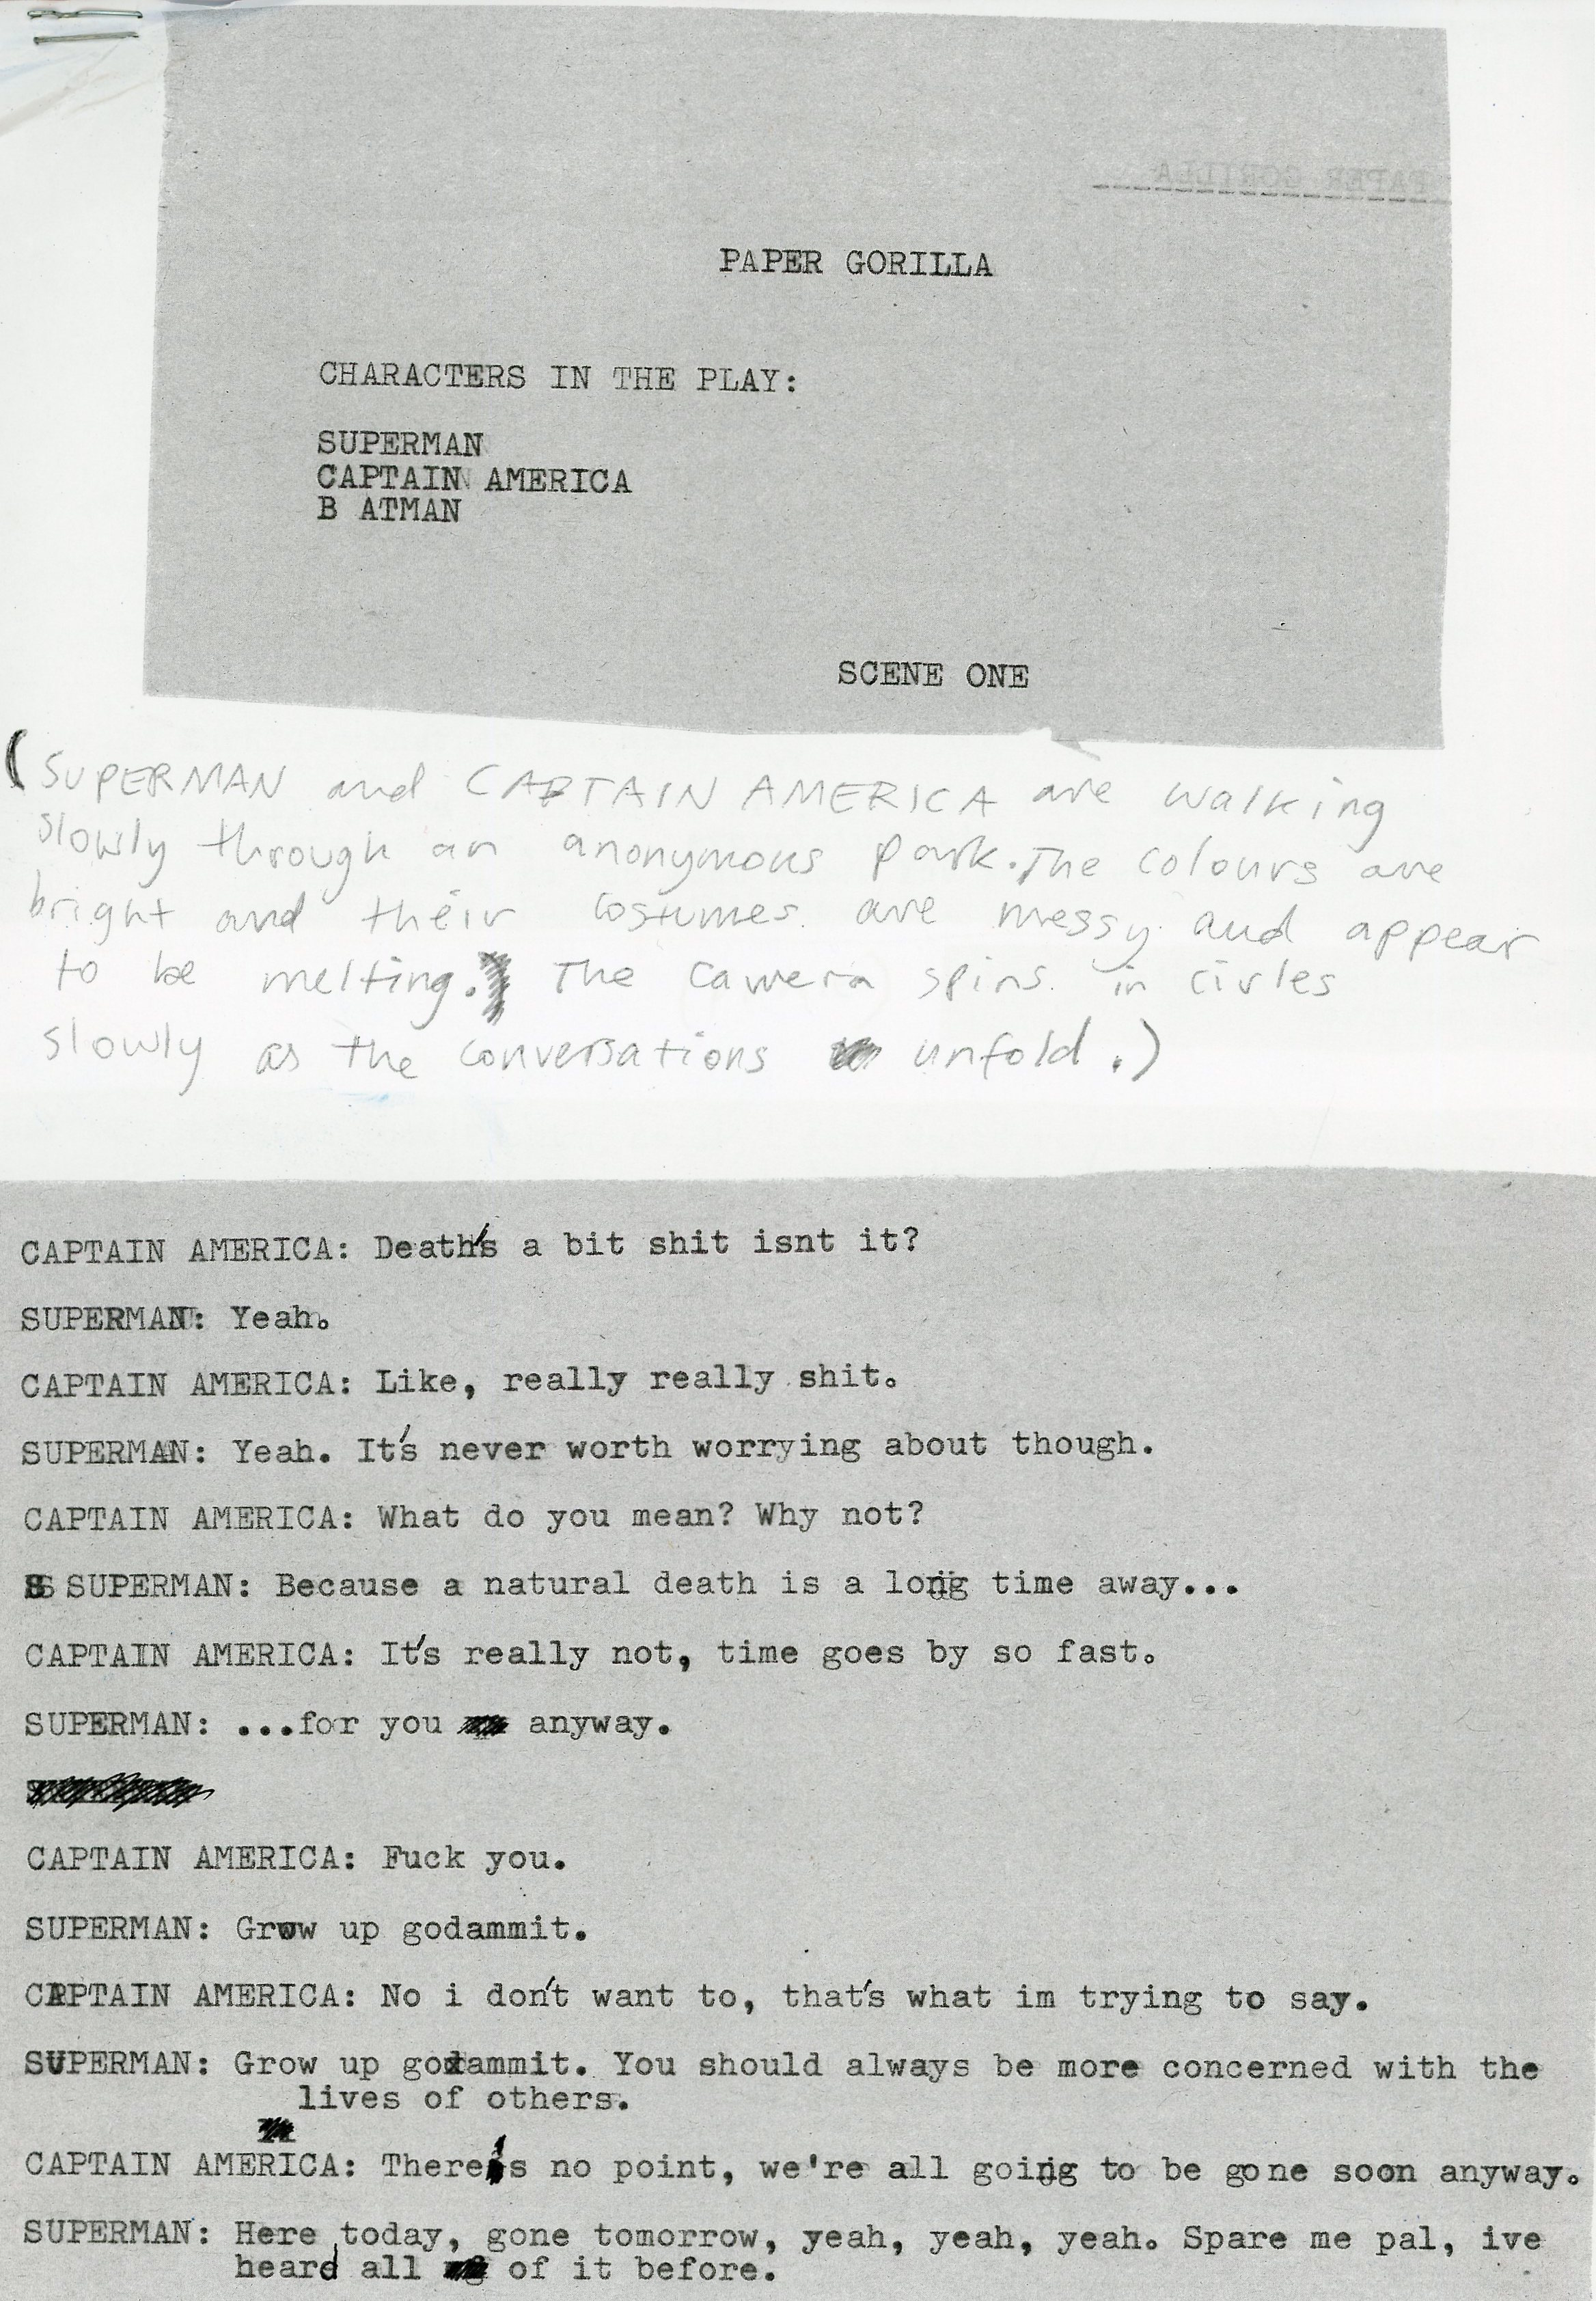 PAPER GORILLA
PAPER GORILLA
CHARACTERS IN THE PLAY:
SUPERMAN
CAPTAIN AMERICA
B ATMAN
SCENE ONE
(SUPERMAN and CAPTAIN AMERICA are walking
slowly through an anonymous park. The colours are
bright and their costumes are messy and appear
to be melting. The camera spins in cirles
slowly as the conversations unfold.)
CAPTAIN AMERICA: Death's a bit shit isnt it?
SUPERMAN: Yeah.
CAPTAIN AMERICA: Like, really really shit.
SUPERMAN: Yeah. It's never worth worrying about though.
CAPTAIN AMERICA: What do you mean? Why not?
SUPERMAN: Because a natural death is a long time away...
CAPTAIN AMERICA: It's really not, time goes by so fast.
SUPERMAN: ...for you anyway.
CAPTAIN AMERICA: Fuck you.
SUPERMAN: Grow up godammit.
CAPTAIN AMERICA: No i don't want to, that's what im trying to say.
SUPERMAN: Grow up godammit. You should always be more concerned with the
lives of others.
CAPTAIN AMERICA: There's no point, we're all going to be gone soon anyway.
SUPERMAN: Here today, gone tomorrow, yeah, yeah, yeah. Spare me pal, ive
heard all of it before.